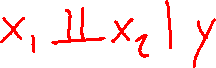 x₁ ⫫ x₂ | y